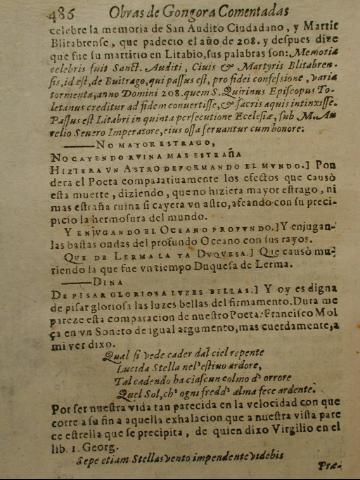 486 Obras de Gongora Comentadas
celebre la memoria de San Audito Ciudadano, y Martir
Blitabrense, que padecio el año de 208. y despues dize
que fue su martirio en Litabio, sus palabras son: Memoria
celebris fuit Sanct. Auditi, Ciuis & Martyris Blitabren-
sis, id est, de Buitrago, qui passus est, pro fidei confessione, varia
tormenta, anno Domini 208. quem S. Quirinus Episcopus To-
letanus creditur ad fidem conuertisse, & sacris aquis intinxisse.
Passus est Litabri in quinta persecutione Ecclesiæ, sub M. Au-
relio Seuero Imperatore, eius ossa seruantur cum honore.
NO MAYOR ESTRAGO,
NO CAYENDO RVINA MAS ESTRAÑA
HIZIERA VN ASTRO DEFORMANDO EL MVNDO.] Pon
dera el Poeta comparatiuamente los efectos que causò
esta muerte, diziendo, que no hiziera mayor estrago, ni
mas estraña ruina si cayera vn astro, afeando con su preci-
picio la hermosura del mundo.
Y ENJVGANDO EL OCEANO PROFVNDO.] Y enjugan-
las bastas ondas del profundo Oceano con sus rayos.
QVE DE LERMA LA YA DVQVESA.] Que causò mu-
riendo la que fue vn tiempo Duquesa de Lerma.
DINA
DE PISAR GLORIOSA LVZES BELLAS.] Y oy es digna
de pisar gloriosa las luzes bellas del firmamento. Dura me
pareze esta comparacion de nuestro Poeta: Francisco Mol
ça en vn Soneto de igual argumento, mas cuerdamente, a
mi ver dixo.
Qual si vede cader dal ciel repente
Lucida Stella nel'estiuo ardore,
Tal cadendo ha ciascun colmo d'orrore
Quel Sol, ch'ogni fredd' alma fece ardente.
Por ser nuestra vida tan parecida en la velocidad con que
corre a su fin a aquella exhalacion que a nuestra vista pare
ce estrella que se precipita, de quien dixo Virgilio en el
lib. 1. Georg.
Sepe etiam Stellas vento impendente videbis
Præ-